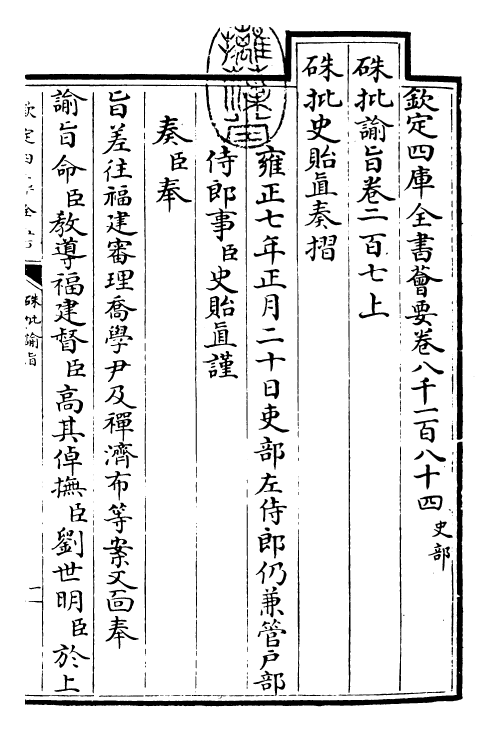 欽定四庫全書薈要卷八千一百八十四 史部
硃批諭旨卷二百七上
硃批史貽直奏摺
雍正七年正月二十日吏部左侍郎仍兼管户部
侍郎事臣史貽直謹
奏臣奉
旨差往福建審理喬學尹及禪濟布等案又面奉
諭旨命臣教導福建督臣高其倬撫臣劉世明臣於上
硃批諭旨
一